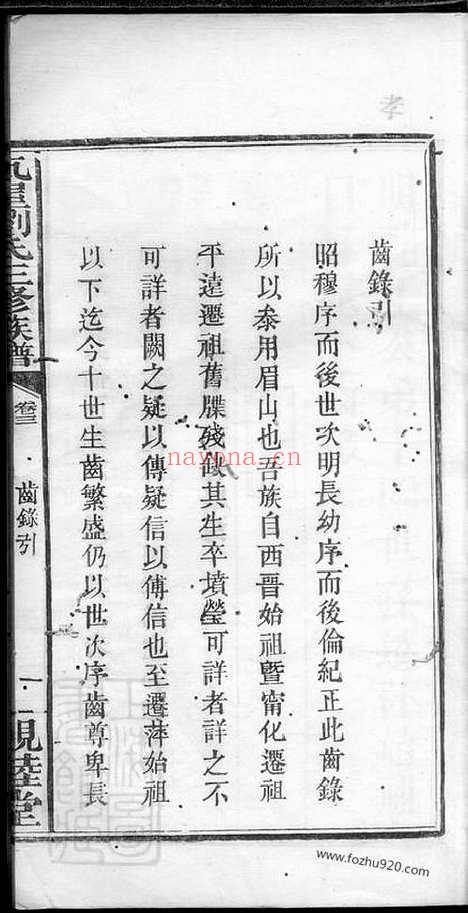 孝
齒錄引
昭穆序而後世次明長幼序而後倫紀正此齒錄
所以叅用眉山也吾族自西晋始祖暨甯化遷祖
平遠遷祖舊牒殘缺其生卒墳塋可詳者詳之不
可詳者闕之疑以傳疑信以傳信也至遷萍始祖
以下迄今十世生齒繁盛仍以世次序齒尊卑長
劉氏三修族譜
卷三
齒錄引
一
親睦堂
nayona.cn
www.fozhu920.com